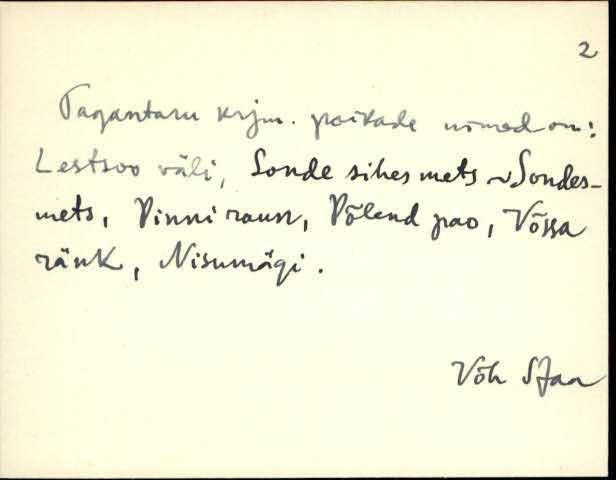 2
Tagantaru krjm. paikade nimed on:
Lestsoo väli, Sonde sihes mets ~ Sondes-
mets, Pinni raun, Põlend pao, Võssa
ränk, Nisumägi.
Võh SJaa